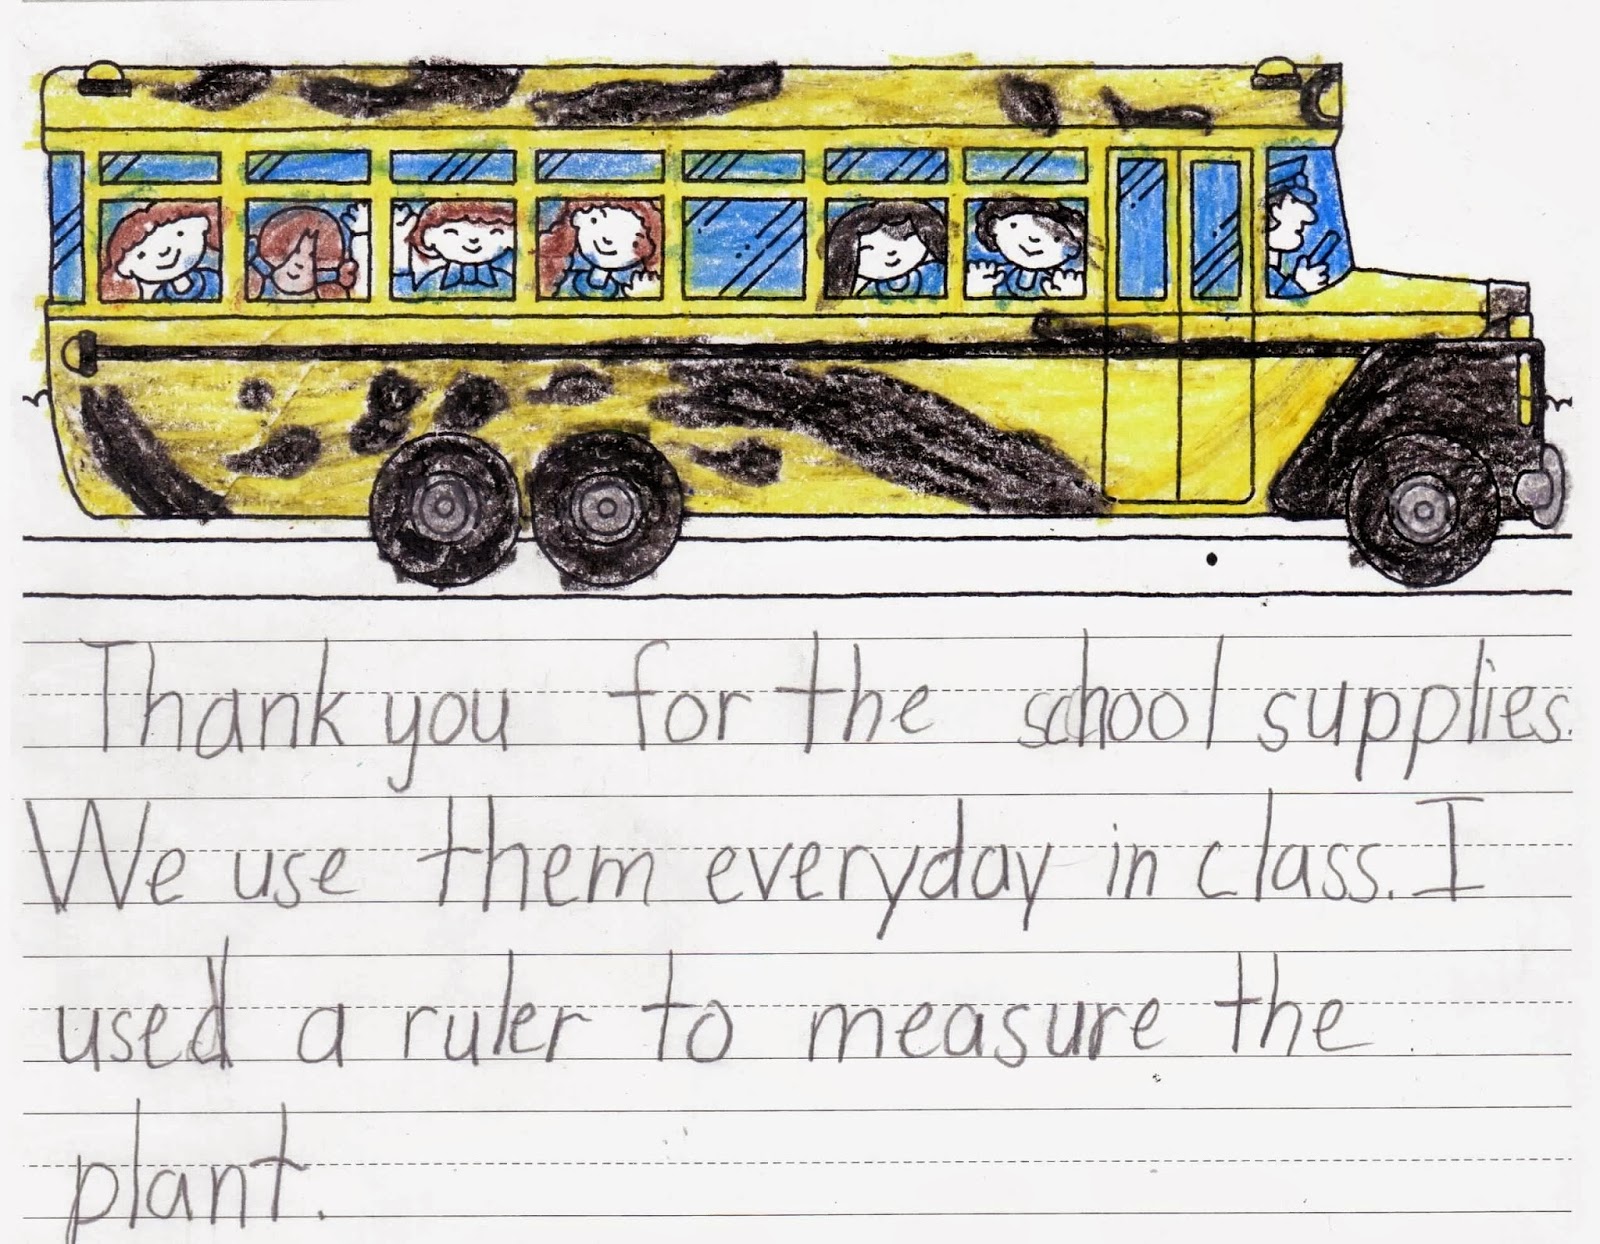 Thank you for the school supplies.
We use them everyday in class. I
used a ruler to measure the
plant.